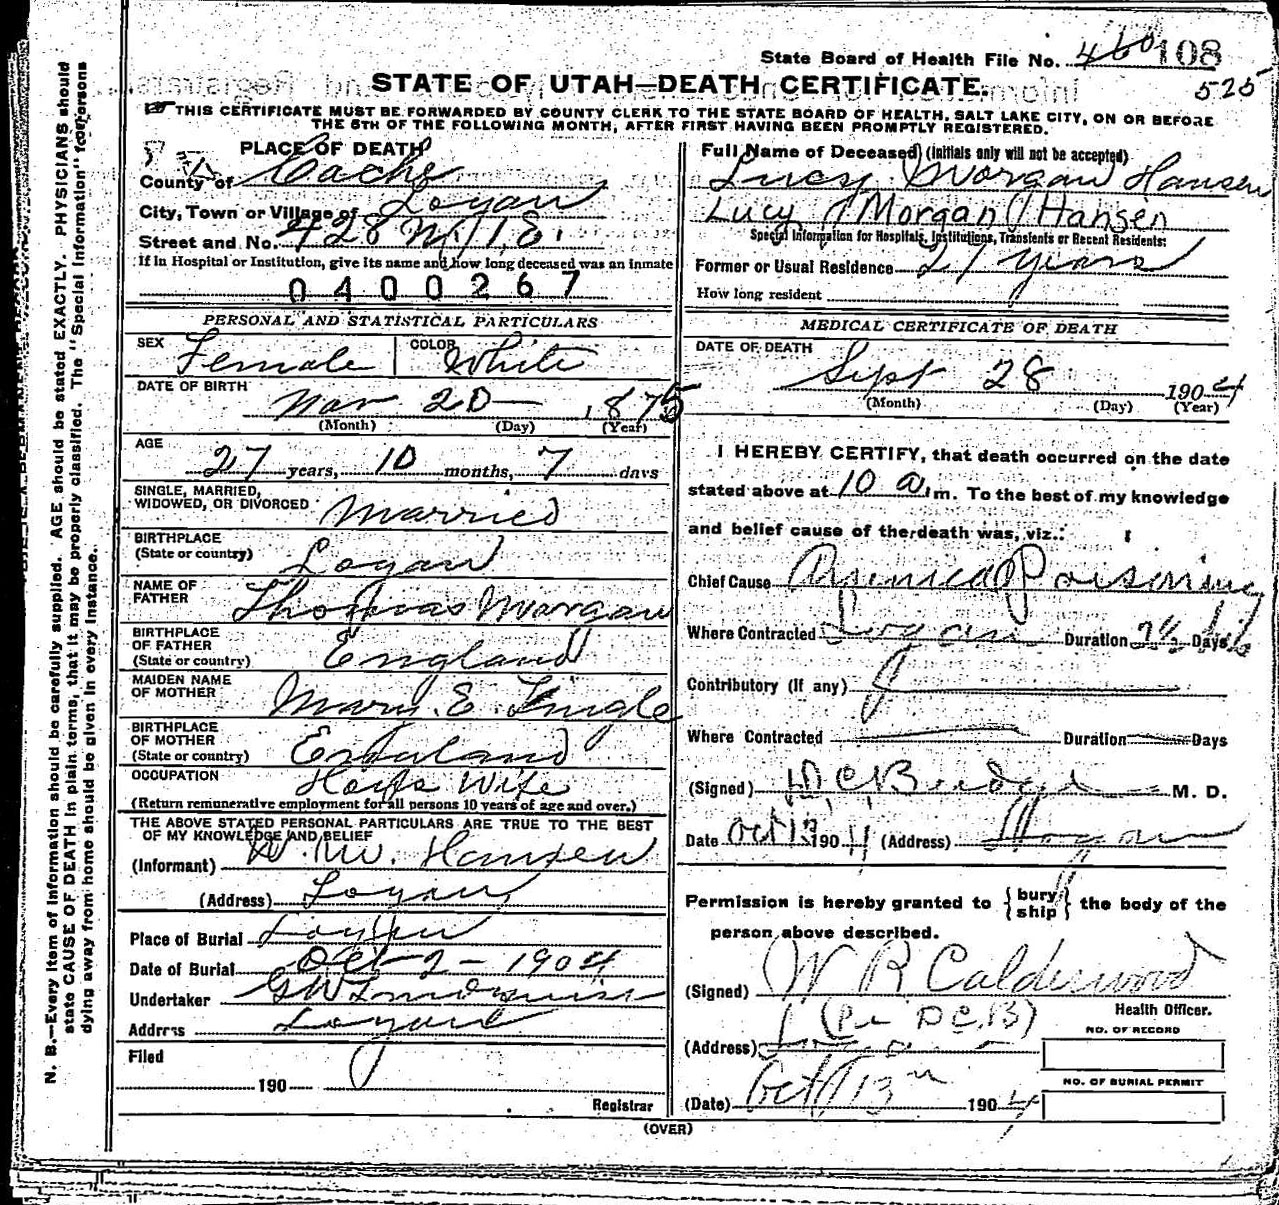 State Board of Health File No. 460 108
525
STATE OF UTAH—DEATH CERTIFICATE.
THIS CERTIFICATE MUST BE FORWARDED BY COUNTY CLERK TO THE STATE BOARD OF HEALTH, SALT LAKE CITY, ON OR BEFORE
THE 5TH OF THE FOLLOWING MONTH, AFTER FIRST HAVING BEEN PROMPTLY REGISTERED.
PLACE OF DEATH
County of Cache
City, Town or Village of Logan
Street and No. 428 N. 1 E.
If in Hospital or Institution, give its name and how long deceased was an inmate
0400267
PERSONAL AND STATISTICAL PARTICULARS
SEX Female COLOR White
DATE OF BIRTH
Nov 20 — 1875
(Month) (Day) (Year)
AGE
27 years, 10 months, 7 days
SINGLE, MARRIED,
WIDOWED, OR DIVORCED Married
BIRTHPLACE
(State or country) Logan
NAME OF
FATHER Thomas Morgan
BIRTHPLACE
OF FATHER
(State or country) England
MAIDEN NAME
OF MOTHER Mary. E.
BIRTHPLACE
OF MOTHER
(State or country) England
OCCUPATION Hous Wife
(Return remunerative employment for all persons 10 years of age and over.)
THE ABOVE STATED PERSONAL PARTICULARS ARE TRUE TO THE BEST
OF MY KNOWLEDGE AND BELIEF
(Informant) W. M. Hansen
(Address) Logan
Place of Burial Logan
Date of Burial Oct 2 - 1904
Undertaker
Address Logan
Filed
190
Registrar
Full Name of Deceased (initials only will not be accepted)
Lucy Morgan Hansen
Lucy (Morgan) Hansen
Special Information for Hospitals, Institutions, Transients or Recent Residents:
Former or Usual Residence 27 years
How long resident
MEDICAL CERTIFICATE OF DEATH
DATE OF DEATH
Sept 28 1904
(Month) (Day) (Year)
I HEREBY CERTIFY, that death occurred on the date
stated above at 10 a. m. To the best of my knowledge
and belief cause of the death was, viz.:
Chief Cause Poisoning
Where Contracted Logan Duration Days
Contributory (If any)
Where Contracted Duration Days
(Signed) D C Budge M. D.
Date Oct 13 1904 (Address) Logan
Permission is hereby granted to {bury ship} the body of the
person above described.
(Signed) W R Calderwood
(Per D C. B) Health Officer.
(Address) Logan
NO. OF RECORD
NO. OF BURIAL PERMIT
(Date) Oct 13th 1904
(OVER)
N. B.—Every item of information should be carefully supplied. AGE should be stated EXACTLY. PHYSICIANS should
state CAUSE OF DEATH in plain terms, that it may be properly classified. The "Special Information" for persons
dying away from home should be given in every instance.